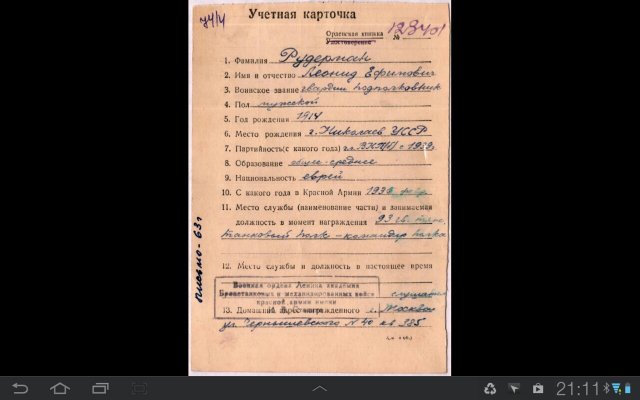 74/4
Учетная карточка
Орденская книжка
Удостоверение № 123401
1. Фамилия Рудерман
2. Имя и отчество Леонид Ефимович
3. Воинское звание гвардии подполковник
4. Пол мужской
5. Год рождения 1914
6. Место рождения г. Николаев УССР
7. Партийность (с какого года)
8. Образование обще-среднее
9. Национальность еврей
10. С какого года в Красной Армии
11. Место службы (наименование части) и занимаемая
должность в момент награждения 93 гв.
танковый полк - командир полка
12. Место службы и должность в настоящее время
Военная ордена Ленина академия
Бронетанковых и механизированных войск
красной армии имени
13. Домашний награжденного г. Москва
ул. Чернышевского N 40 кв 385
письмо-63г
21:11